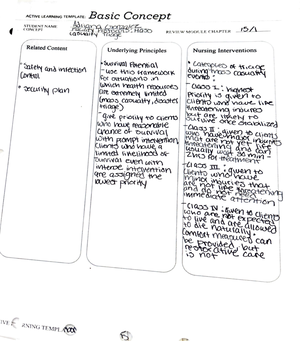 ACTIVE LEARNING TEMPLATE: Basic Concept
STUDENT NAME
CONCEPT
Casualty Triage
REVIEW MODULE CHAPTER
Related Content
• Safety and infection
control
• Security plan
Underlying Principles
• Survival Potential
- use this framework
for situations in
which health resources
are extremely limited
(mass casualty, disaster
triage)
- give priority to clients
who have reasonable
chance of survival
with prompt intervention,
clients who have a
limited likelihood of
survival even with
intense intervention
are assigned the
lower priority
Nursing Interventions
• Categories of triage
during mass casualty
events:
- Class I: highest
priority is given to
clients who have life
threatening injuries
but are likely to
survive once stabilized
- Class II: given to clients
who have major
injuries that are not
yet life
threatening and can
usually wait 30 min-
2hrs for treatment
- Class III: given to
clients who have
minor injuries that
are not life threatening
and do not need
immediate attention
- Class IV: given to clients
who are not expected
to live and are allowed
to die naturally.
Comfort measures can
be provided, but
restorative care
is not